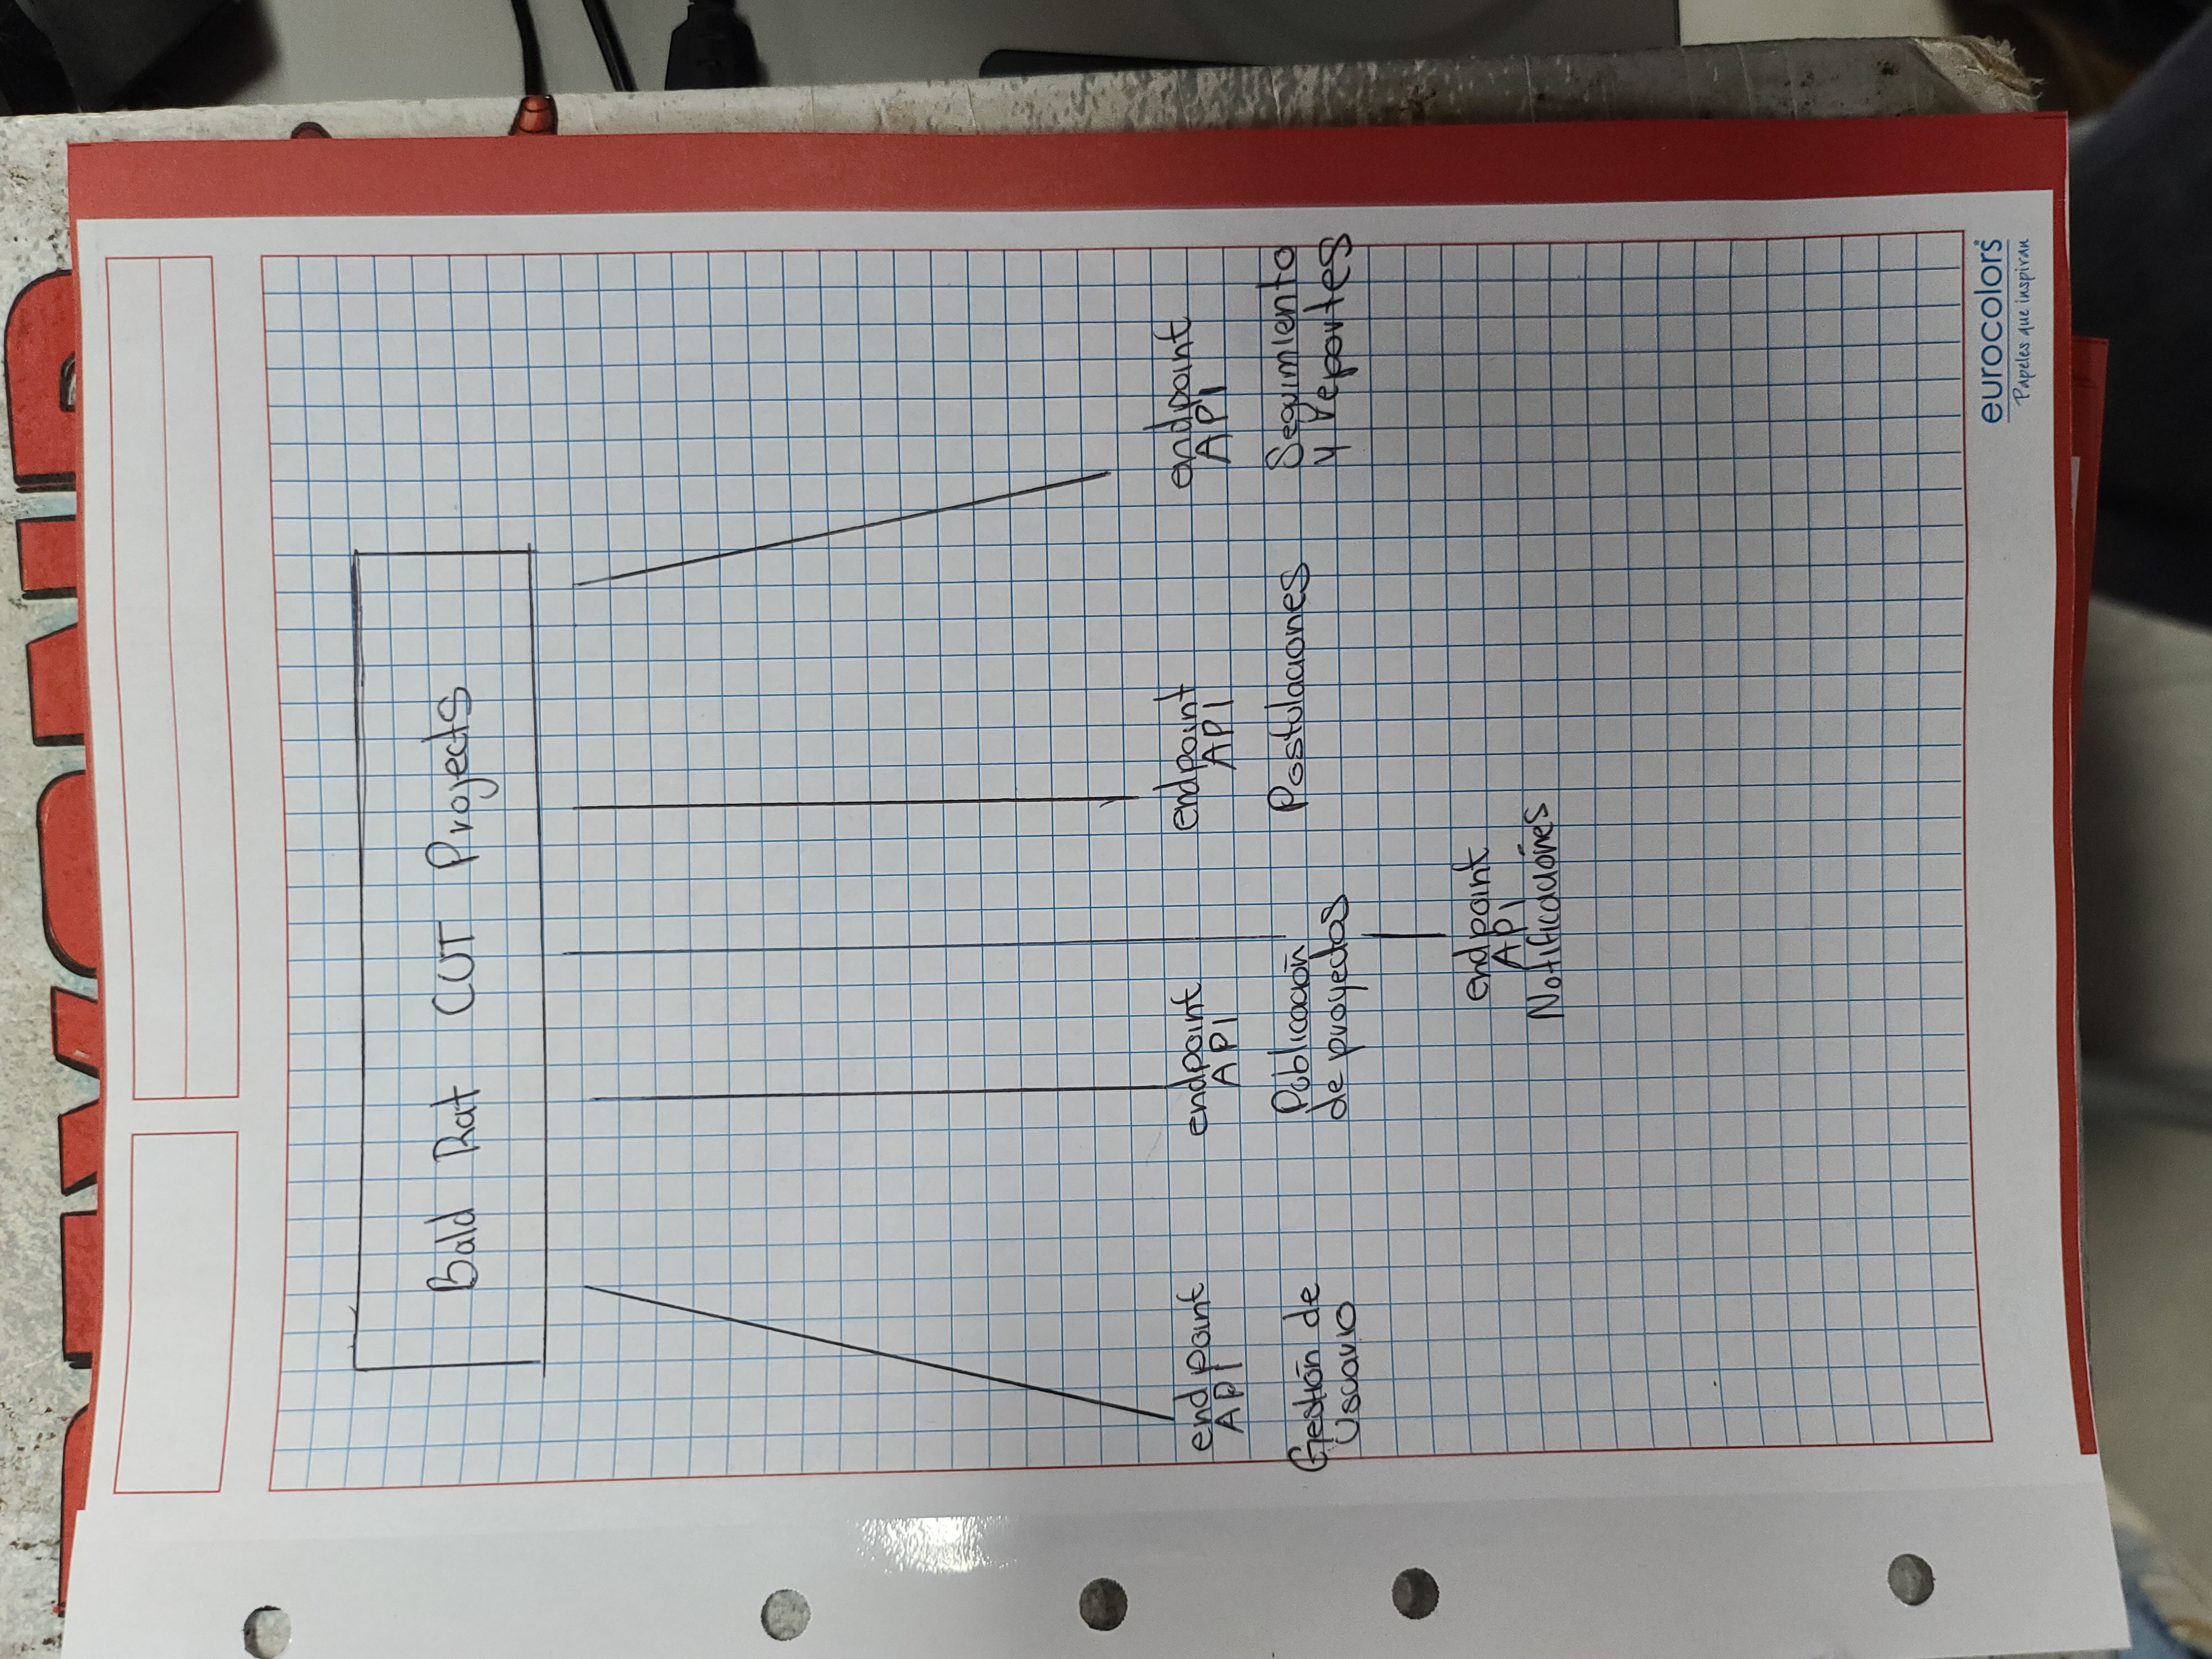 BEYOND
Bald Rat CUT Projects
endpoint
API
Gestión de
Usuario
endpoint
API
Publicación
de proyectos
endpoint
API
Postulaciones
endpoint
API
Seguimiento
y reportes
endpoint
API
Notificaciones
eurocolors
Papeles que inspiran